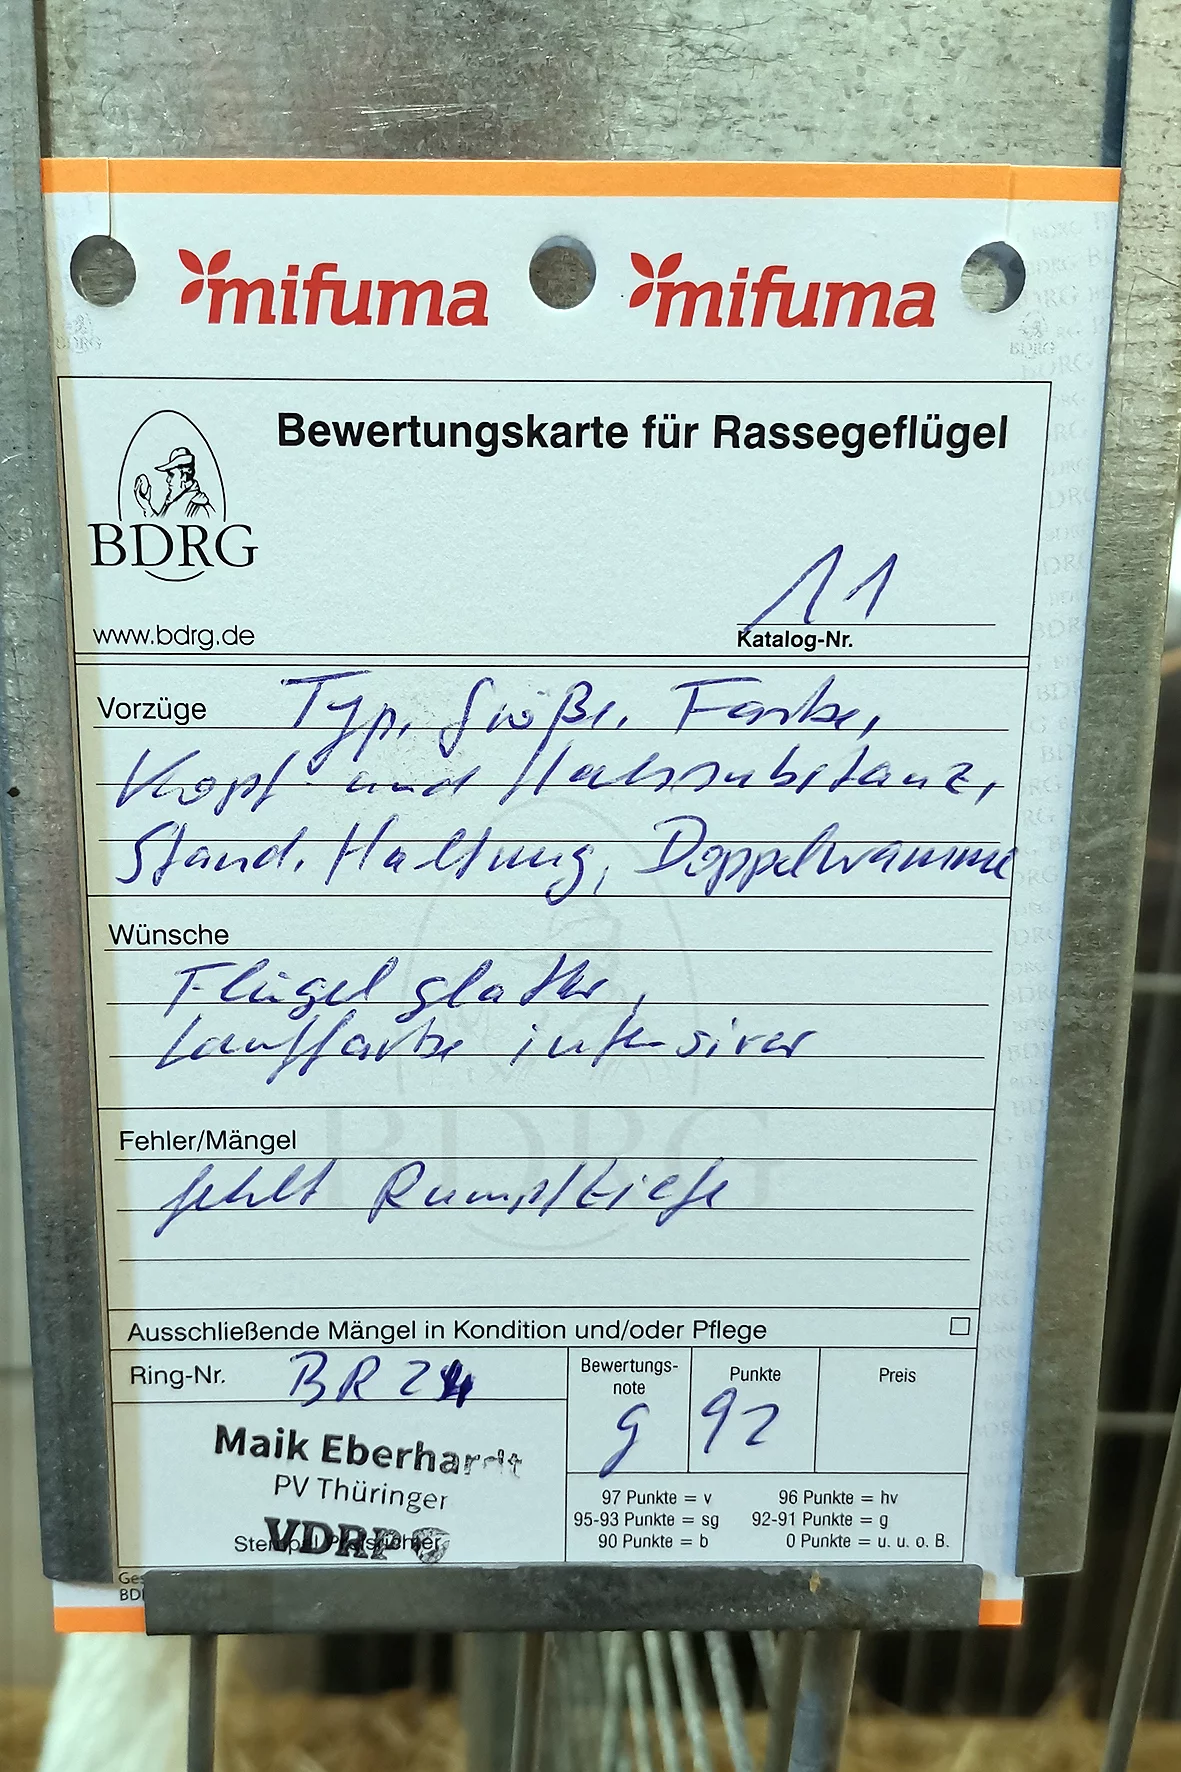 mifuma mifuma
Bewertungskarte für Rassegeflügel
BDRG
www.bdrg.de
11
Katalog-Nr.
Vorzüge Typ, Größe, Farbe,
Kopf- und Halssubstanz,
Stand, Haltung, Doppelwamme
Wünsche
Flügel glatter,
Lauffarbe intensiver
Fehler/Mängel
fehlt Rumpftiefe
Ausschließende Mängel in Kondition und/oder Pflege
Ring-Nr. BR 24
Bewertungs-
note
g
Punkte
92
Preis
Maik Eberhardt
PV Thüringer
VDRP
Stempel Preisrichter
97 Punkte = v 96 Punkte = hv
95-93 Punkte = sg 92-91 Punkte = g
90 Punkte = b 0 Punkte = u. u. o. B.